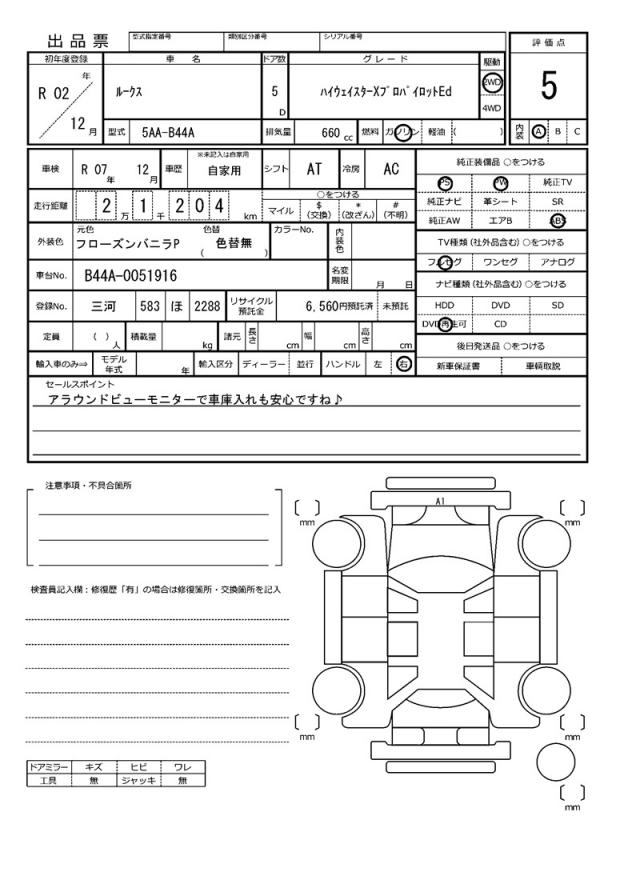 出品票 型式指定番号 類別区分番号 シリアル番号
評価点
初年度登録 車名 ドア数 グレード 駆動
R 02 年 12 月 ルークス 5 D ハイウェイスターXプロパイロットEd 2WD 4WD
5
型式 5AA-B44A 排気量 660 cc 燃料 ガソリン 軽油 ( )
内装 A B C
車検 R 07 年 12 月 車歴 ※未記入は自家用 自家用 シフト AT 冷房 AC
純正装備品 ○をつける
PS PW 純正TV
走行距離 2 万 1 千 2 0 4 km ○をつける
マイル $ (交換) * (改ざん) # (不明)
純正ナビ 革シート SR
純正AW エアB ABS
外装色 元色 フローズンバニラP 色替 色替無 ( ) カラーNo. 内装色
TV種類 (社外品含む) ○をつける
フルセグ ワンセグ アナログ
車台No. B44A-0051916 名変期限 月 日
ナビ種類 (社外品含む) ○をつける
登録No. 三河 583 ほ 2288 リサイクル預託金 6,560円預託済 未預託
HDD DVD SD
DVD再生可 CD
定員 ( ) 人 積載量 kg 諸元 長さ cm 幅 cm 高さ cm
後日発送品 ○をつける
輸入車のみ⇒ モデル年式 年 輸入区分 ディーラー 並行 ハンドル 左 右
新車保証書 車輌取説
セールスポイント
アラウンドビューモニターで車庫入れも安心ですね♪
注意事項・不具合箇所
A1
mm
mm
検査員記入欄：修復歴「有」の場合は修復箇所・交換箇所を記入
mm
mm
ドアミラー キズ ヒビ ワレ
工具 無 ジャッキ 無
mm